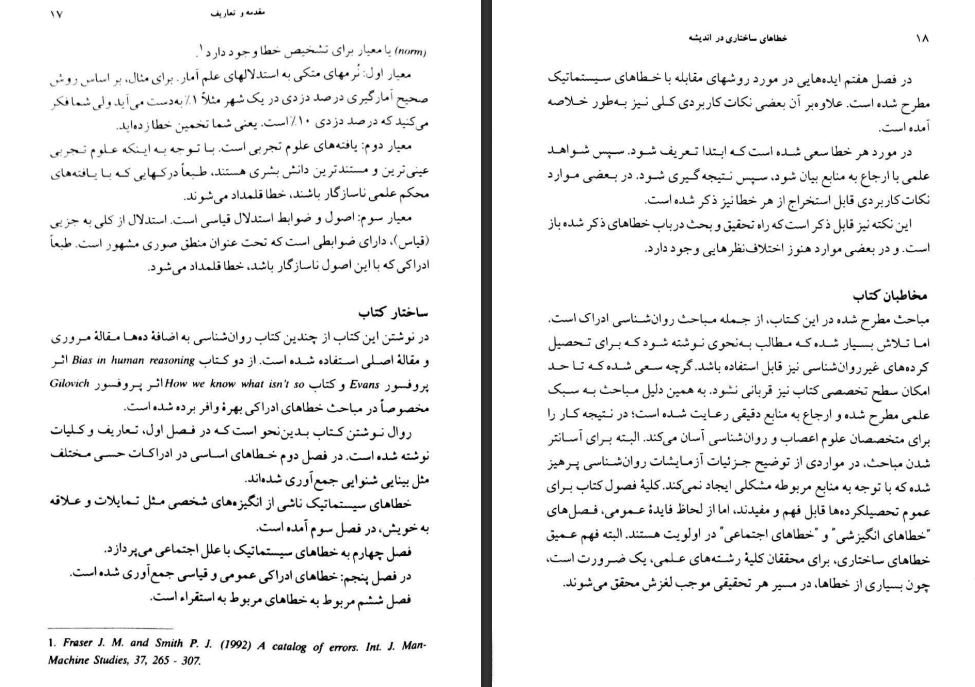 مقدمه و تعاریف ۱۷
(norm) یا معیار برای تشخیص خطا وجود دارد۱.
معیار اول: نُرمهای متکی به استدلالهای علم آمار. برای مثال، بر اساس روش
صحیح آمارگیری درصد دزدی در یک شهر مثلاً ۱٪ به‌دست می‌آید ولی شما فکر
می‌کنید که درصد دزدی ۱۰٪ است. یعنی شما تخمین خطا زده‌اید.
معیار دوم: یافته‌های علوم تجربی است. با توجه به اینکه علوم تجربی
عینی‌ترین و مستندترین دانش بشری هستند، طبعاً درکهایی که با یافته‌های
محکم علمی ناسازگار باشند، خطا قلمداد می‌شوند.
معیار سوم: اصول و ضوابط استدلال قیاسی است. استدلال از کلی به جزیی
(قیاس)، دارای ضوابطی است که تحت عنوان منطق صوری مشهور است. طبعاً
ادراکی که با این اصول ناسازگار باشد، خطا قلمداد می‌شود.
ساختار کتاب
در نوشتن این کتاب از چندین کتاب روان‌شناسی به اضافهٔ ده‌ها مقالهٔ مروری
و مقالهٔ اصلی استفاده شده است. از دو کتاب Bias in human reasoning اثر
پروفسور Evans و کتاب How we know what isn't so اثر پروفسور Gilovich
مخصوصاً در مباحث خطاهای ادراکی بهرهٔ وافر برده شده است.
روال نوشتن کتاب بدین‌نحو است که در فصل اول، تعاریف و کلیات
نوشته شده است. در فصل دوم خطاهای اساسی در ادراکات حسی مختلف
مثل بینایی شنوایی جمع‌آوری شده‌اند.
خطاهای سیستماتیک ناشی از انگیزه‌های شخصی مثل تمایلات و علاقه
به خویش، در فصل سوم آمده است.
فصل چهارم به خطاهای سیستماتیک با علل اجتماعی می‌پردازد.
در فصل پنجم: خطاهای ادراکی عمومی و قیاسی جمع‌آوری شده است.
فصل ششم مربوط به خطاهای مربوط به استقراء است.
1. Fraser J. M. and Smith P. J. (1992) A catalog of errors. Int. J. Man-
Machine Studies, 37, 265 - 307.
۱۸ خطاهای ساختاری در اندیشه
در فصل هفتم ایده‌هایی در مورد روشهای مقابله با خطاهای سیستماتیک
مطرح شده است. علاوه‌بر آن بعضی نکات کاربردی کلی نیز به‌طور خلاصه
آمده است.
در مورد هر خطا سعی شده است که ابتدا تعریف شود. سپس شواهد
علمی با ارجاع به منابع بیان شود، سپس نتیجه‌گیری شود. در بعضی موارد
نکات کاربردی قابل استخراج از هر خطا نیز ذکر شده است.
این نکته نیز قابل ذکر است که راه تحقیق و بحث درباب خطاهای ذکر شده باز
است. و در بعضی موارد هنوز اختلاف‌نظرهایی وجود دارد.
مخاطبان کتاب
مباحث مطرح شده در این کتاب، از جمله مباحث روان‌شناسی ادراک است.
اما تلاش بسیار شده که مطالب به‌نحوی نوشته شود که برای تحصیل
کرده‌های غیرروان‌شناسی نیز قابل استفاده باشد. گرچه سعی شده که تا حد
امکان سطح تخصصی کتاب نیز قربانی نشود. به همین دلیل مباحث به سبک
علمی مطرح شده و ارجاع به منابع دقیقی رعایت شده است؛ در نتیجه کار را
برای متخصصان علوم اعصاب و روان‌شناسی آسان می‌کند. البته برای آسانتر
شدن مباحث، در مواردی از توضیح جزئیات آزمایشات روان‌شناسی پرهیز
شده که با توجه به منابع مربوطه مشکلی ایجاد نمی‌کند. کلیهٔ فصول کتاب برای
عموم تحصیلکرده‌ها قابل فهم و مفیدند، اما از لحاظ فایدهٔ عمومی، فصل‌های
"خطاهای انگیزشی" و "خطاهای اجتماعی" در اولویت هستند. البته فهم عمیق
خطاهای ساختاری، برای محققان کلیهٔ رشته‌های علمی، یک ضرورت است،
چون بسیاری از خطاها، در مسیر هر تحقیقی موجب لغزش محقق می‌شوند.